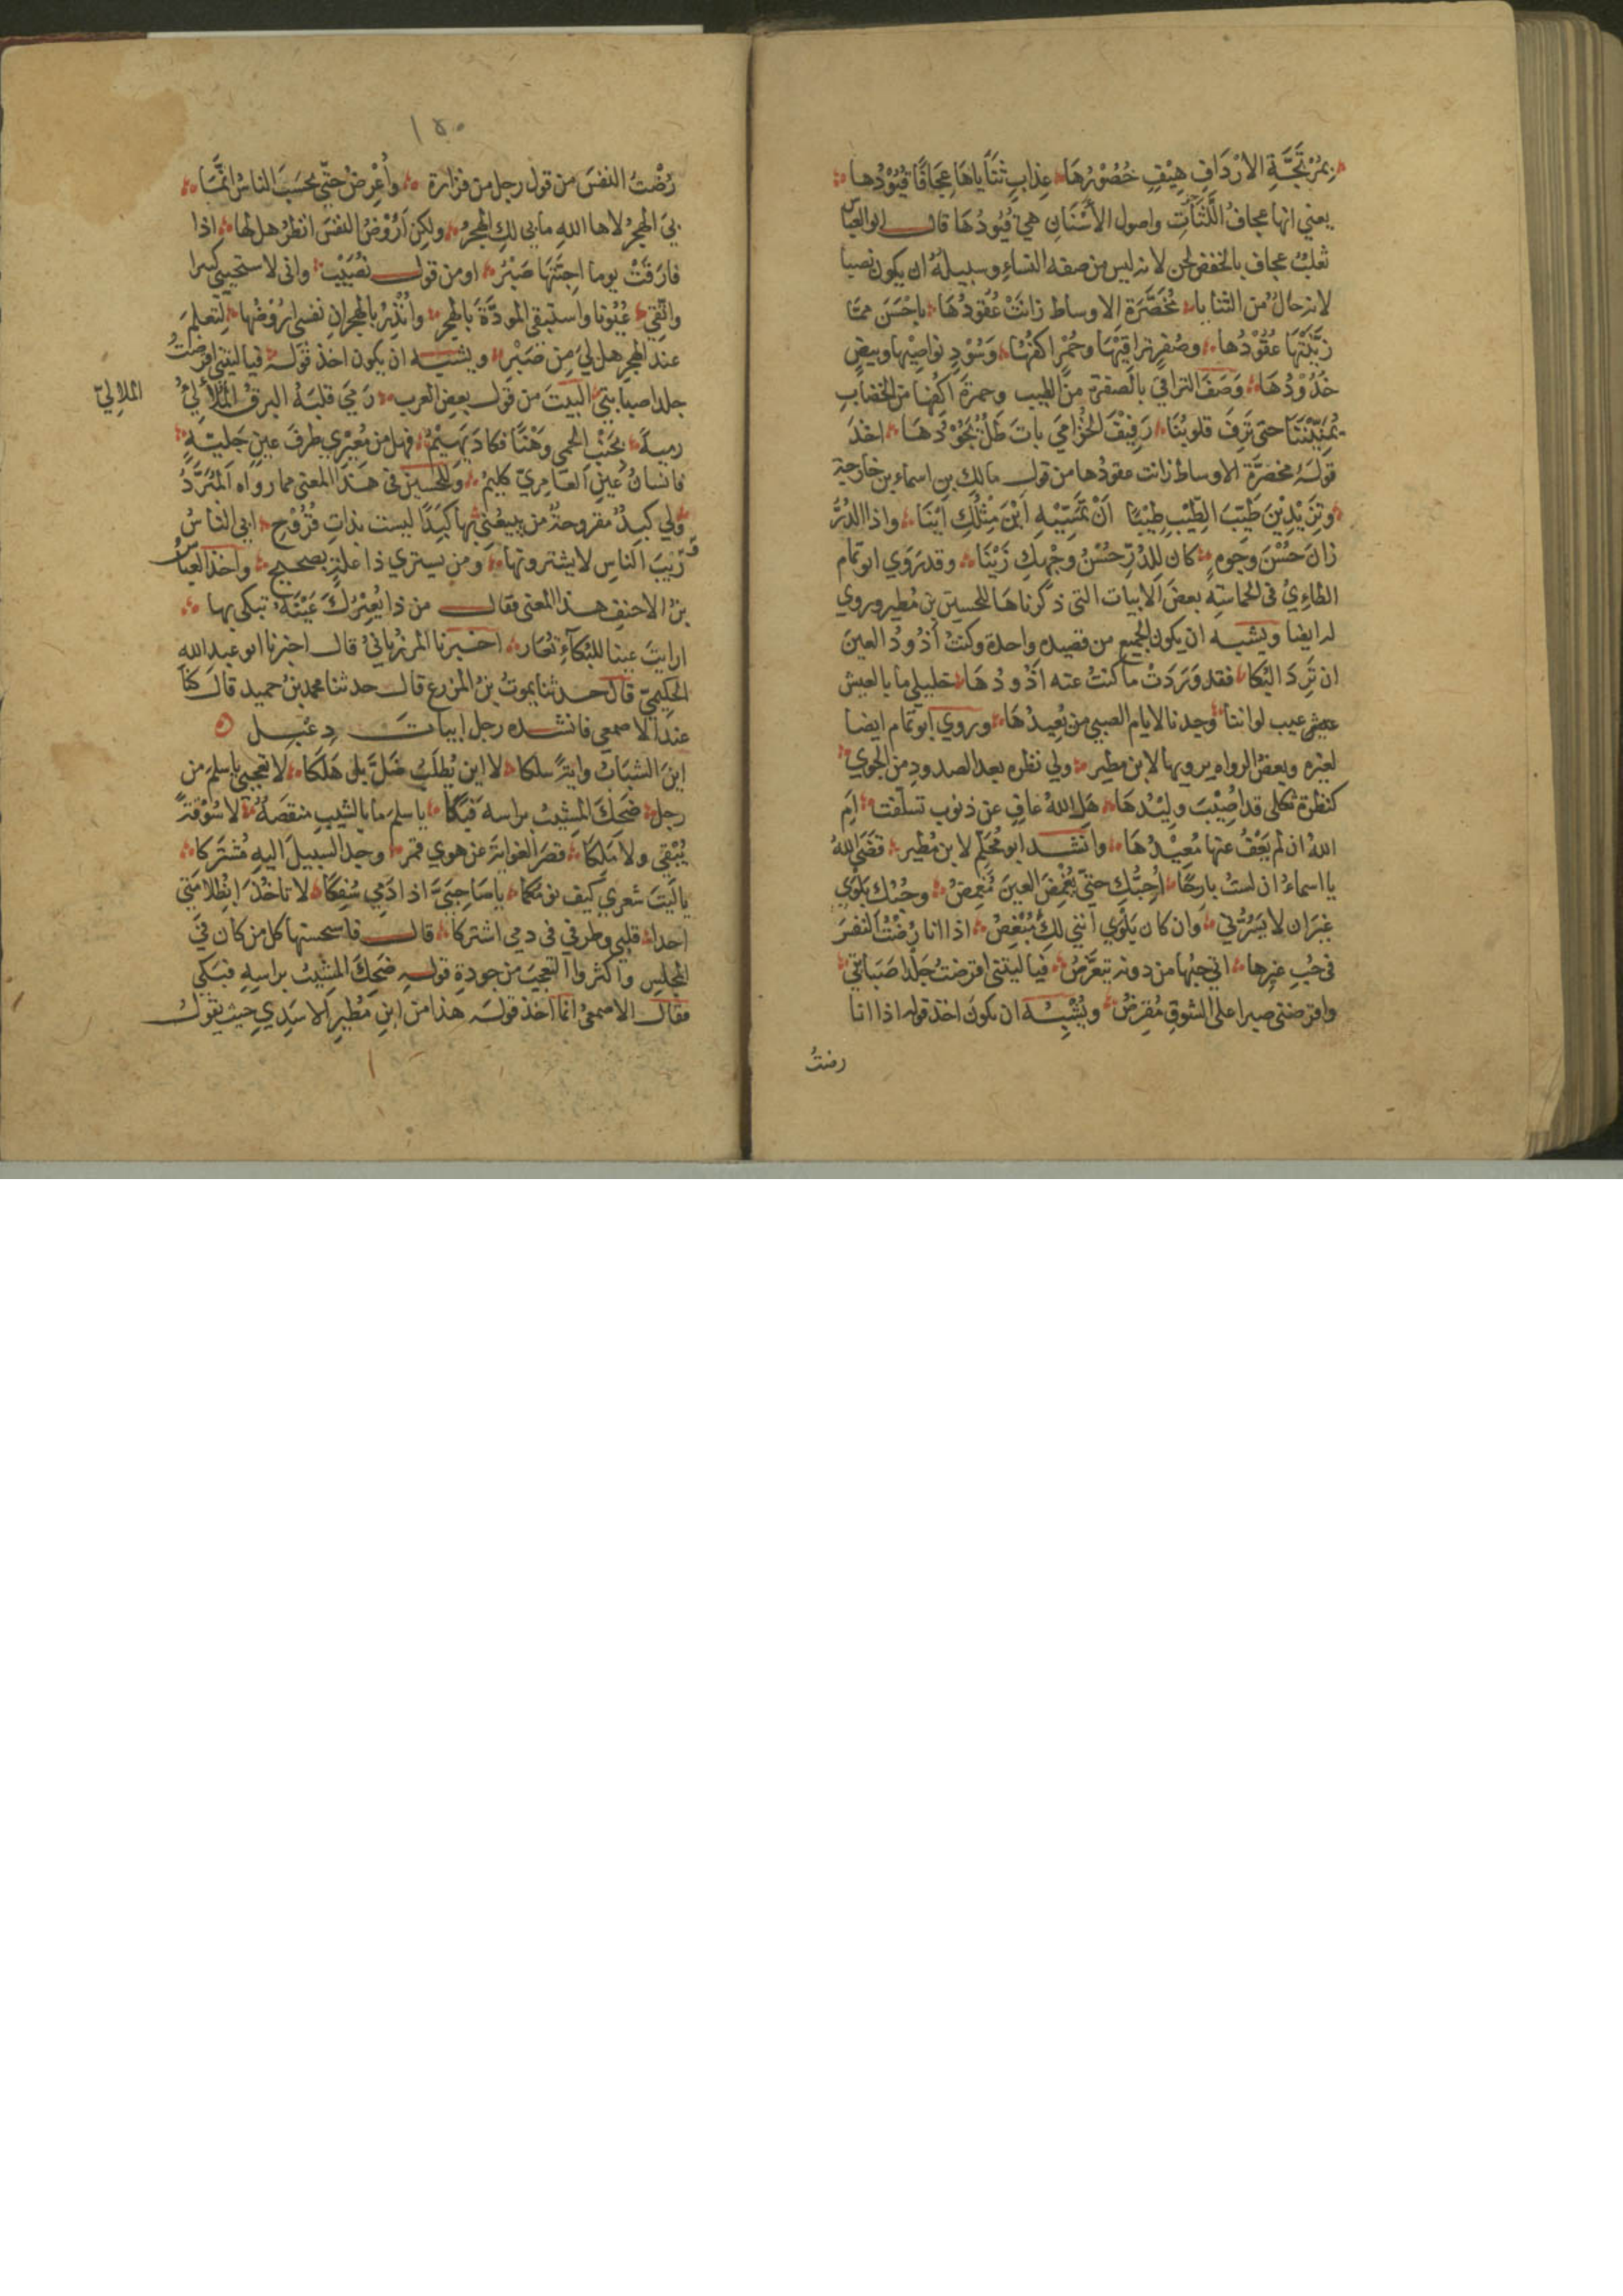 بمُرْتَجَّةِ الارْدَافِ هِيْفٍ خُصُوْرُهَا عِذابٍ ثَنَاَياهَا عِجَافًا قُيُوْدُها
يعني انها عجافُ اللَّثَاتِ واصول الأَسْنَانِ هي قُيُودُهَا قال لي ابو العباس
ثعلبُ عجاف بالخفض لحن لانه ليس من صفة النساءِ وسبيلهُ ان يكون نصبا
لانه حالٌ من الثنايا مُخَصَّرَة الاوساط زانَتْ عُقُودُهَا باحْسَنَ ممّا
زيَّنَتْهَا عقُوْدُها وصُفْرٍ تراقِيْهَا وحُمْرٍ اكفُّهَا وَسُوْدٍ نواصِيْها وبيضٍ
خُدُوْدُهَا وَصَفَ التراقي بالصفرة من الطيب وحمرةَ اكفُّها من الخضابِ
يُمَنِّيْنَنَا حتى تَرِفَّ قلوبُنَا رَفِيْفَ الخُزامَي باتَ طَلٌّ يَجُوْدُهَا اخذَ
قولَهُ مخصرَّة الاوساط زانت عقودُها من قول مالك بن اسماء بن خارجة
وتَزِيْدِيْنَ طَيِّبَ الطِّيْبِ طِيْبًا اَنْ تَمَسِّيْهِ اَيْنَ مِثْلُكِ اَيْنَا واذا الدُّرُّ
زانَ حُسْنَ وجوهٍ كان لِلدُرِّ حُسْنُ وجْهِكِ زَيْنَا وقد رَوَي ابو تمام
الطاءِيُّ في الحماسَةِ بعضَ الابيات التي ذكرناها للحسين بن مُطير وروي
له ايضا ويشبه ان يكون الجميع من قصيده واحدة وكنتُ أذُودُ العينَ
ان تَرِدَ البُكَا فقد وَرَدَتْ ما كنتُ عنه اَذُودُهَا خليلي ما بالعيش
عيب لو اننا وجدنا لايام الصبي من يُعِيدُهَا وروي ابو تمام ايضا
لغيره وبعضُ الرواه يرويها لابن مطير ولي نظره بعد الصدودِ من الجوي
كنظرة ثكلى قد اُصِيْبَ وليْدُهَا هَلِ اللهُ عافٍ عن ذنوبٍ تسلّفت اَمِ
اللهُ ان لم يَعْفُ عنها مُعِيْدُهَا وانشد ابو مُحَلِّم لابن مُطير قضَي اللهُ
يا اسماءُ ان لستُ بارحًا اُحِبُّكِ حتى يُغْمِضَ العينَ مُغْمِضُ وحُبُّكِ بَلْوَي
غير ان لا يَسُرُّني وان كان بَلْوَي انني لكِ مُبْغِضُ اذا انا رُضْتُ النفسَ
في حُبِ غيرِها اتي حبُّها من دونه يتعرّضُ فيا ليتني اقرضتُ جَلْدًا صَبَابَتي
واقرضني صبرا على الشوقِ مُقرِضُ ويُشْبِهُ ان يكونَ اخذ قوله اذا انا
رضتُ
١٥٠
رُضْتُ النفسَ من قول رجل من فزارة وأُعْرِضُ حتّي يحسَبَ الناسُ انّمَا
بيَ الهجرُ لاها اللهِ ما بي لكِ الهجرُ ولكِن اَرُوْضُ النفسَ انظرُ هل لها اذا
فارَقَتْ يوما احِبَّتَهَا صَبْرُ او من قول نُصَيْب واني لاستحيي كثيرا
واتّقي عُيُونا واستبقي المودَّةَ بالهجرِ وأُنْذِرُ بالهجرانِ نفسي ارُوْضُها لِتعلم
عند الهجرِ هل ليَ من صَبْرِ ويشبه ان يكون اخذ قوْلَه فيا ليتني اقرضتُ
جلدا صبابتي البيتَ من قول بعضِ العرب رَمي قلبَهُ البرقُ المُلَأْلِيُّ
الملالِيّ
رميةً بجَنْبِ الحمي وَهْنًا فكادَ يَهِيْمُ فهل من مُعِيْرِي طرفَ عينٍ جَليّةٍ
فانسانُ عينِ العامِريّ كليمُ وللحسين في هَذَا المعني مما رواه المُبَرَّدُ
ولي كبِدٌ مقروحةٌ من يبيعُني بها كَبِدًا ليست بذاتِ قُرُوْحِ ابي الناسُ
رَيْبَ الناسِ لا يشترونها ومن يشتري ذا علةٍ بصحيح واخذ العبّاسُ
بنُ الاحنفِ هذا المعني فقال من ذا يُعِيْرُكَ عَيْنَهُ تبكي بها
ارايتَ عينا للبُكآءِ تُعَار اخبرنا المرزُبانيُ قال اخبرنا ابو عبد الله
الحكيميّ قال حدثنا يموتُ بنُ المزرع قال حدثنا محمدبنُ حميد قال كنّا
عند الاصمعي فانشده رجل ابياتَ دِعْبِل
اينَ الشبَابُ وايّةً سلكا لا اين يُطلَبُ ضَلَّ بلى هَلَكَا لا تعجبي يا سلمَ من
رجلٍ ضحِكَ المشيْبُ براسه فَبَكَا يا سلمَ ما بالشيبِ منقصَةٌ لا سُوْقَةً
يُبْقِي ولا مَلِكَا قصَرَ الغوايَةَ عن هوي قمرٍ وجدَ السبيلَ اليهِ مُشترَكا
يا ليتَ شعري كيف نومُكما يا صَاحِبَيَّ اذا دَمي سُفِكَا لا تاخُذَا بِظُلامَتي
احدا قلبي وطرفي في دمي اشتركا قال فاستحسنها كل من كان في
المجلسِ واكثروا التعجبَ من جودةِ قولِه ضحِكَ المشيْبُ براسِهِ فبَكي
فقال الاصمعيُ انما اخذ قولَه هذا من ابنِ مُطيرٍ الاسَدِي حيث يقولُ